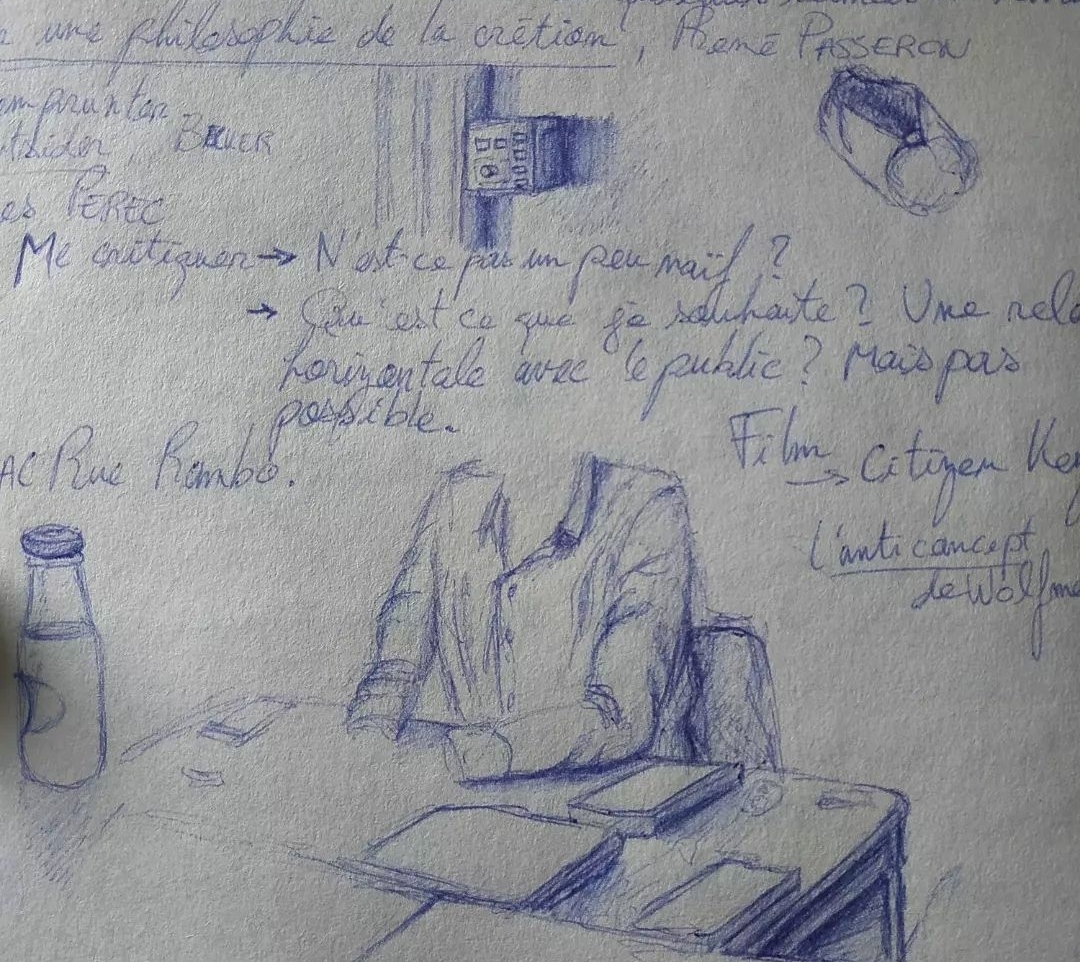 une philosophie de la crétion, René PASSERON
emprunter
BAUER
PEREC
Me critiquer → N'est-ce pas un peu naïf ?
→ Qu'est ce que je souhaite ? Une rela
horizontale avec le public ? Mais pas
possible.
AC Rue Rambo.
Film
→ Citizen
L'anticoncept
de Wolfma